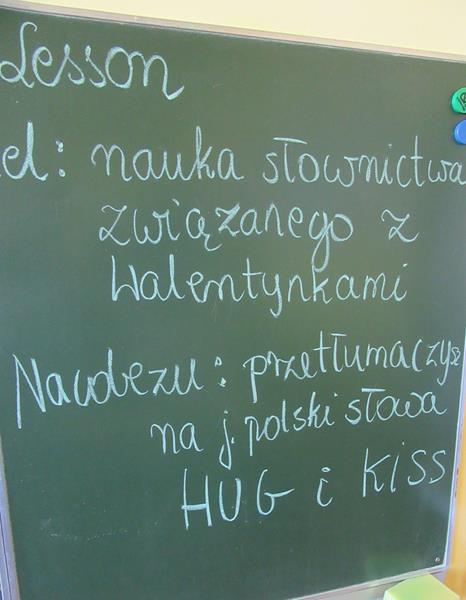 Lesson
el: nauka słownictwa
związanego z
Walentynkami
Nacobezu: przetłumaczysz
na j. polski słowa
HUG i KISS